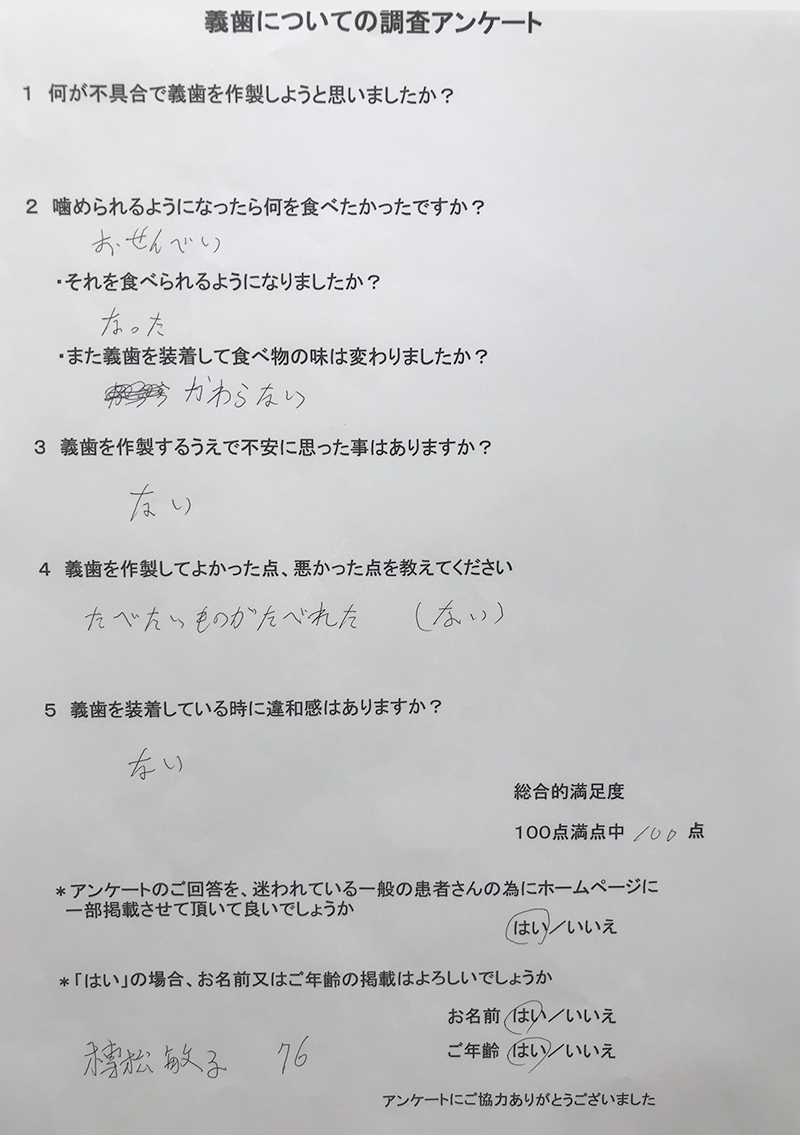 義歯についての調査アンケート
1 何が不具合で義歯を作製しようと思いましたか?
2 噛められるようになったら何を食べたかったですか?
おせんべい
・それを食べられるようになりましたか?
なった
・また義歯を装着して食べ物の味は変わりましたか?
かわらない
3 義歯を作製するうえで不安に思った事はありますか?
ない
4 義歯を作製してよかった点、悪かった点を教えてください
たべたいものがたべれた (ない)
5 義歯を装着している時に違和感はありますか?
ない
総合的満足度
100点満点中 100 点
*アンケートのご回答を、迷われている一般の患者さんの為にホームページに
一部掲載させて頂いて良いでしょうか
はい/いいえ
*「はい」の場合、お名前又はご年齢の掲載はよろしいでしょうか
お名前 はい/いいえ
ご年齢 はい/いいえ
松敏子 76
アンケートにご協力ありがとうございました